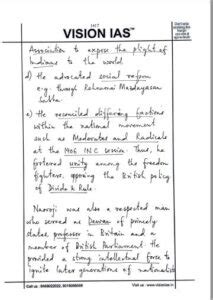 VISION IAS™
Association to expose the plight of
Indians to the world.
d) He advocated social reform
e.g. through Rehnumai Mazdayasan
Sabha.
e) He reconciled differing factions
within the national movement
such as Moderates and Radicals
at the 1906 INC session. Thus, he
fostered unity among the freedom
fighters, opposing the British policy
of Divide & Rule.
Naoroji was also a respected man
who served as Dewan of princely
states, professor in Britain and a
member of British Parliament. He
provided a strong intellectual force to
ignite later generations of nationalists